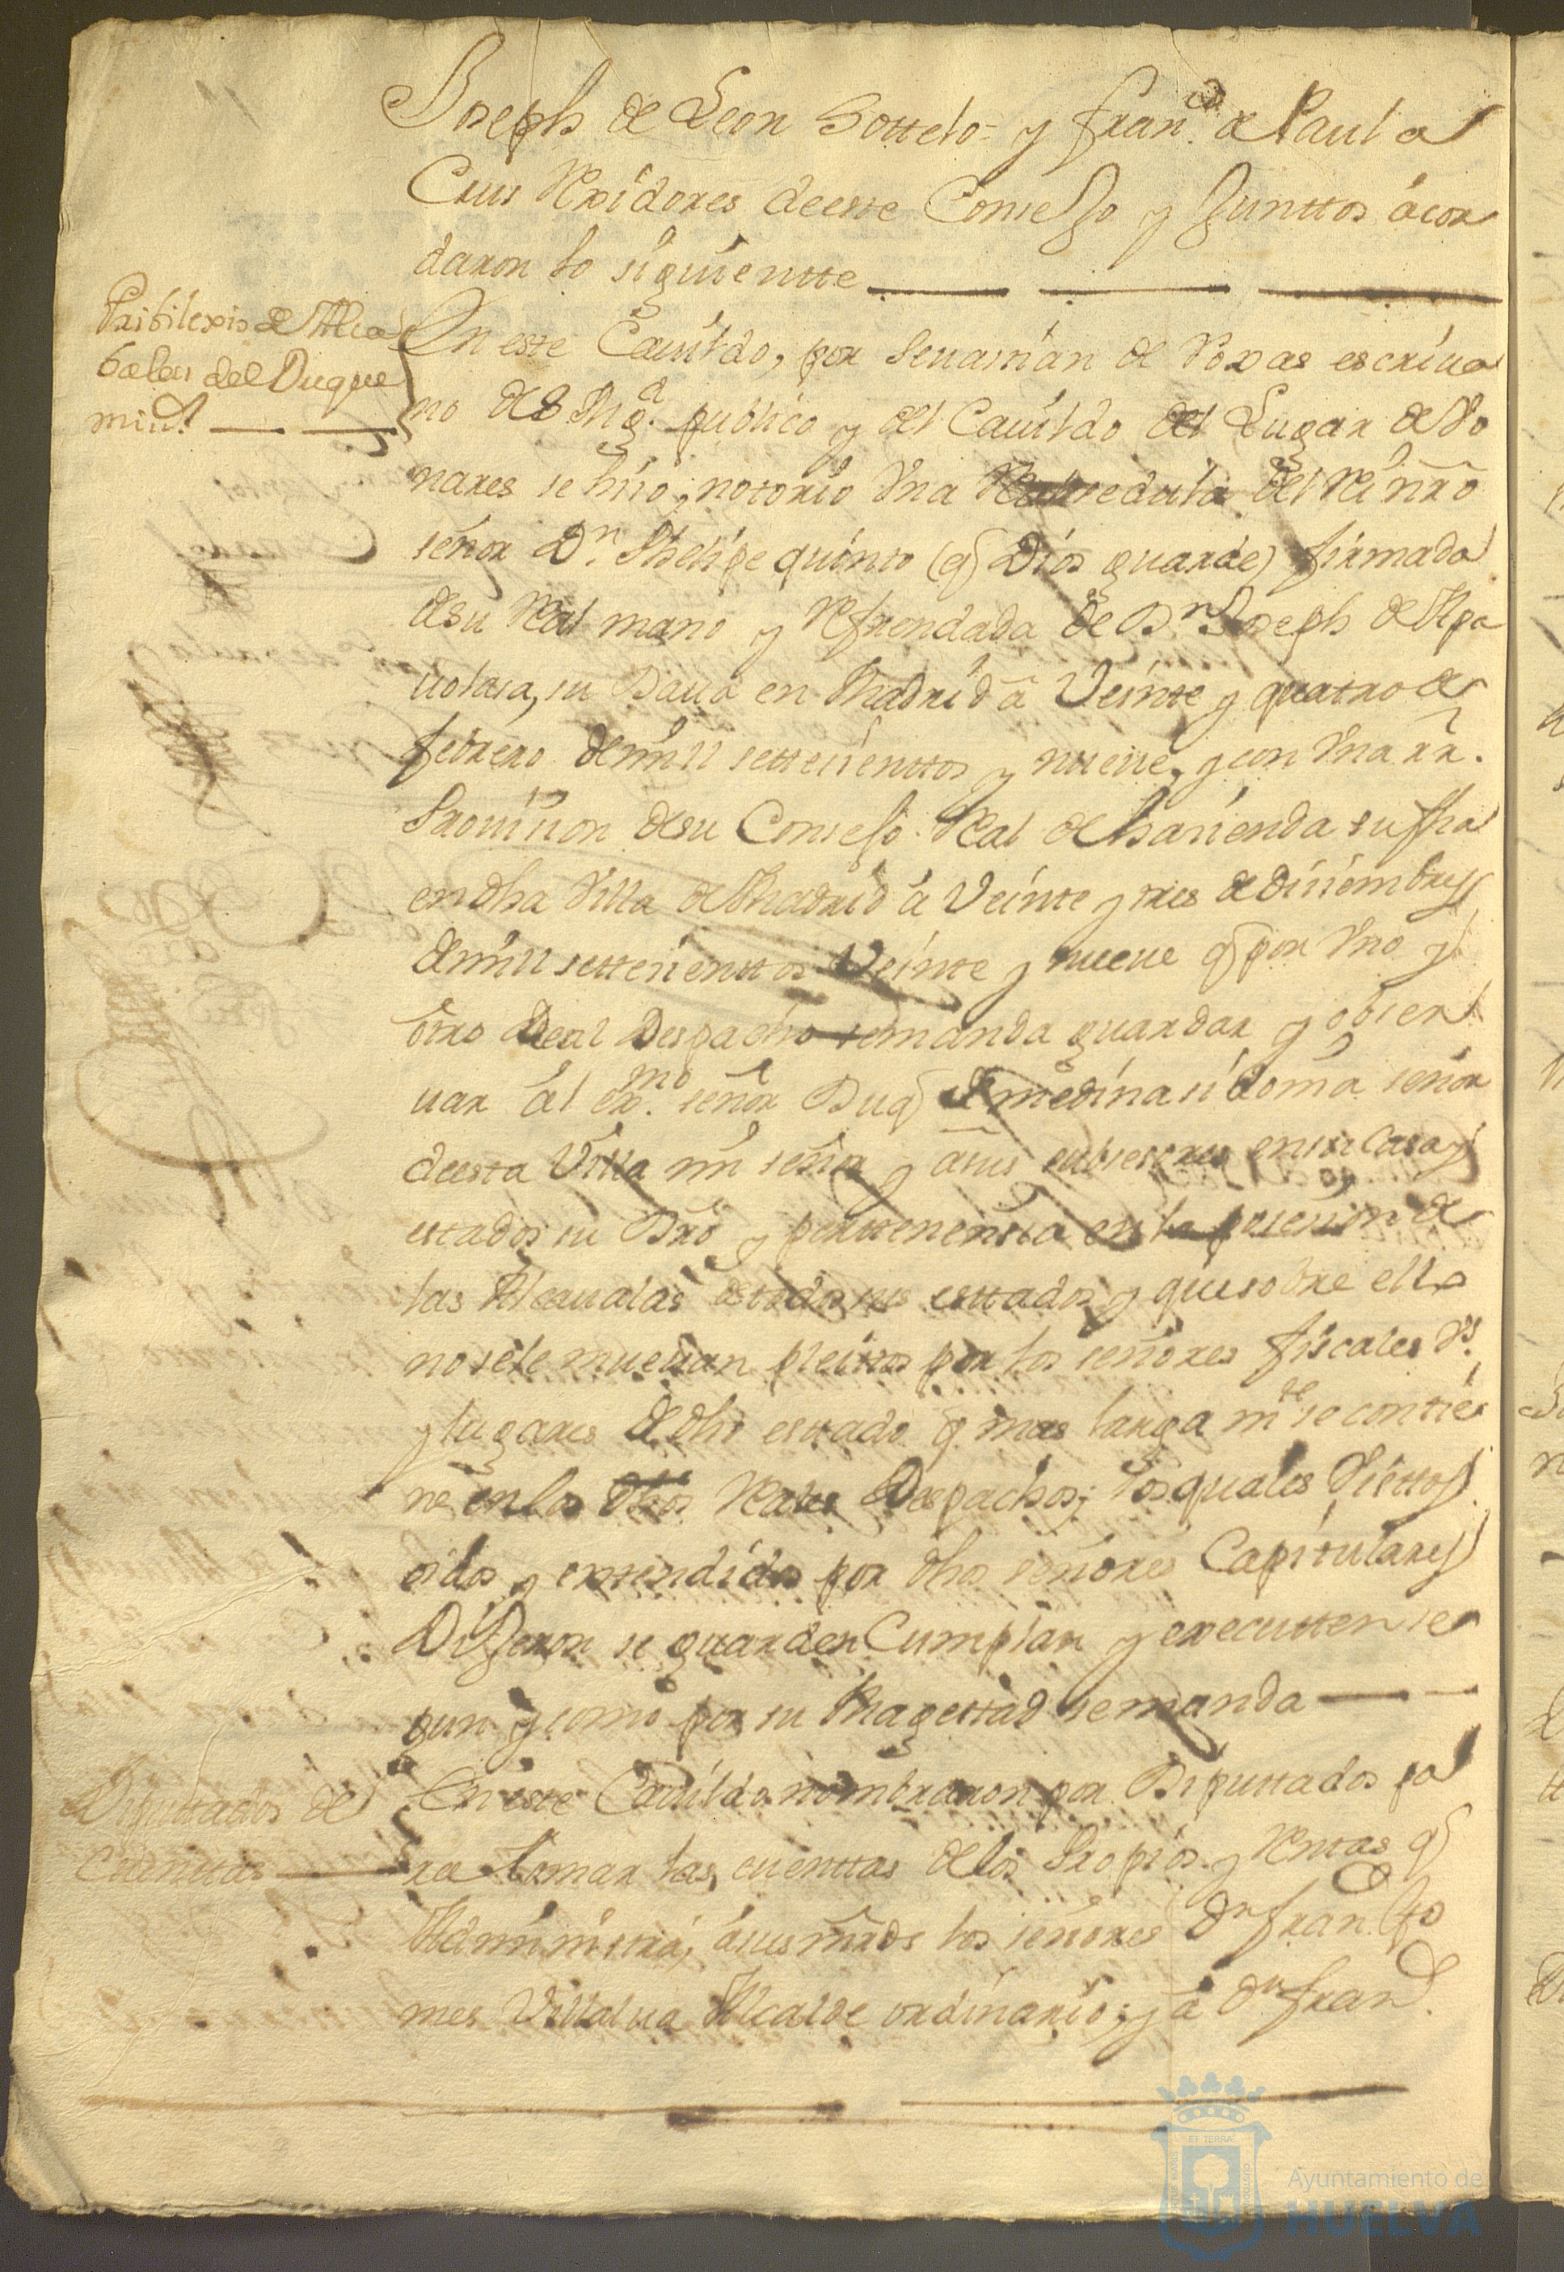 Joseph de Leon Sottelo= y franco. de Paula
Crus Rexidores de este Consejo y Junttos acor
daron lo siguientte
Pribilexio de Alca
balas del Duque
mi sr.
En este Cauildo, por Seuastian de Roxas escriua
no de S Mgd. publico y del Cauildo del Lugar de Bo
nares se hiso notorio Vna Real sedula del Rei nro
señor Dn. Phelipe quinto (q Dios guarde) firmada
de su Real mano y Refrendada de Dn Joseph de Apa
uolasa, su Datta en Madrid a Veinte y quatro de
febrero de mill settesienttos y nueve, y con Vna rr.
Prouision de su Consejo Real de hasienda su fha
en dha Villa de Madrid a Veinte y tres de disiembre
de mill settesienttos Veinte y nueve q por Vno y
otro Real Despacho se manda guardar y obser
uar al exmo. señor Duq de medina sidonia señor
de esta Villa mi señor y a sus subsesores en su Casa y
estados su Dro y perttenensia en la posesion de
las Alcaualas de todos sus esttados y que sobre ello
no se le mueuan pleittos por los señores fiscales Vs.
y lugares de dho esttado q mas larga mte se conttie
ne en los dhos Reales Despachos; los quales Visttos
oidos y entendidos por dhos señores Capitulares
Dijeron se guarden Cumplan y executten se
gun y como por su Magesttad se manda
Diputtados de
Cuenttas
En este Cauildo nombraron por Diputtados pa
ra tomar las cuenttas de los Propios y Rentas q
Administra, a sus mrds los señores Dn franco Go
mes Villalua Alcalde ordinario, y a Dn franco.
ET TERRA
Ayuntamiento de
HUELVA